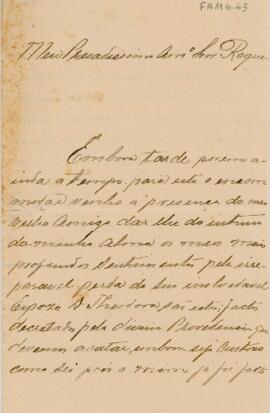 FAM6.63
Meu Presadissimo Am.º Snr Roque
Embora tarde porem a-
inda a tempo para este o encom
modar venho a presença do meu
velho Amigo dar lhe do intimo
da minha Alma os meus mais
profundos Sentimentos pela irre-
paravel perda da sua inolvidavel
Espoza D Theodora são estes factos
decretados pela divina Providencia que
devemos acatar, embora seja Custoso
como sei pois a mim já foi